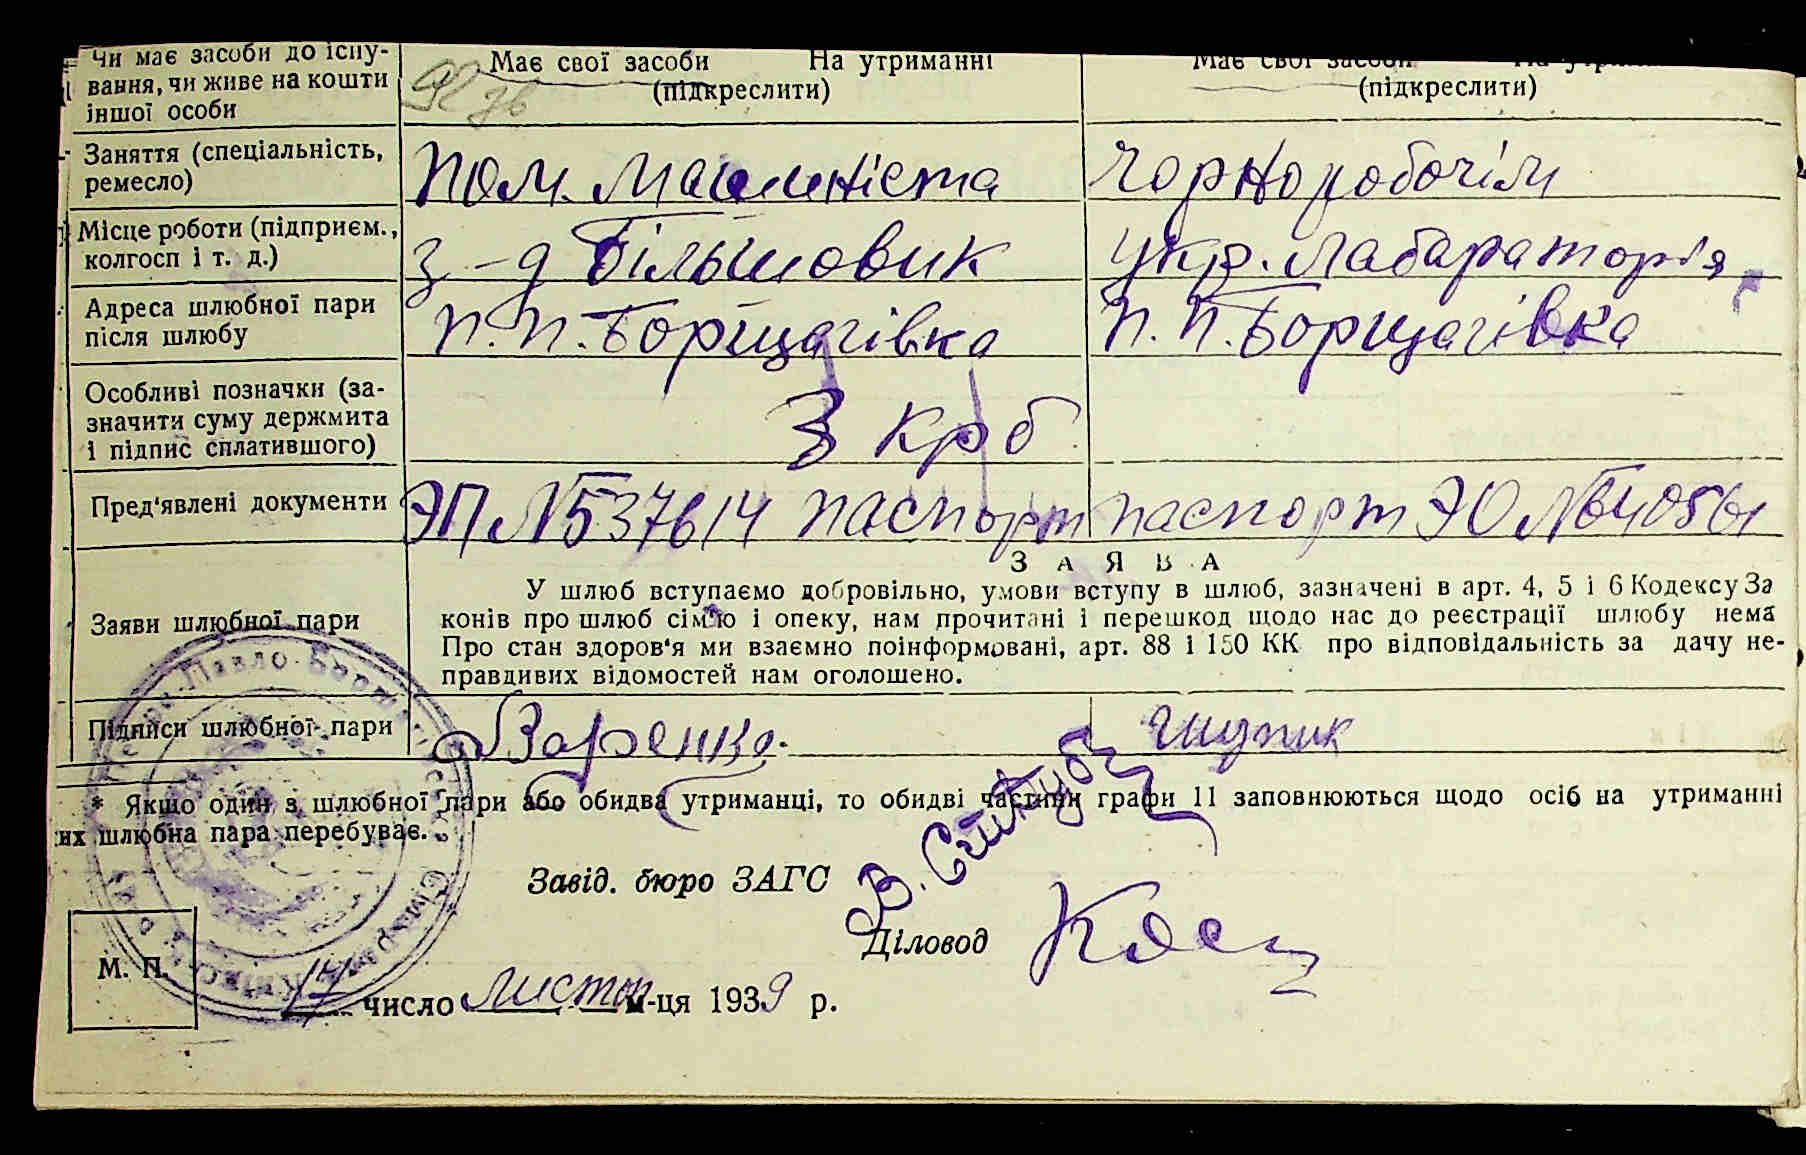 Чи має засоби до існу- Має свої засоби На утриманні Має свої засоби
вання, чи живе на кошти (підкреслити) (підкреслити)
іншої особи
Заняття (спеціальність, Пом. Машиніста Чорноробочім
ремесло)
Місце роботи (підприєм., з-д Більшовик Укр. Лабараторія
колгосп і т. д.)
Адреса шлюбної пари П.П. Борщагівка П.П. Борщагівка
після шлюбу
Особливі позначки (за-
значити суму держмита 3 крб
і підпис сплатившого)
Пред'явлені документи ЭП №537614 паспорт паспорт ЭЮ №640561
ЗАЯВА
У шлюб вступаємо добровільно, умови вступу в шлюб, зазначені в арт. 4, 5 і 6 Кодексу За
Заяви шлюбної пари конів про шлюб сім'ю і опеку, нам прочитані і перешкод щодо нас до реєстрації шлюбу нема
Про стан здоров'я ми взаємно поінформовані, арт. 88 і 150 КК про відповідальність за дачу не-
правдивих відомостей нам оголошено.
Підписи шлюбної пари
* Якщо один з шлюбної пари або обидва утриманці, то обидві частини графи 11 заповнюються щодо осіб на утриманні
их шлюбна пара перебуває.
Завід. бюро ЗАГС
Діловод
М. П.
14 число листоп м-ця 1939 р.